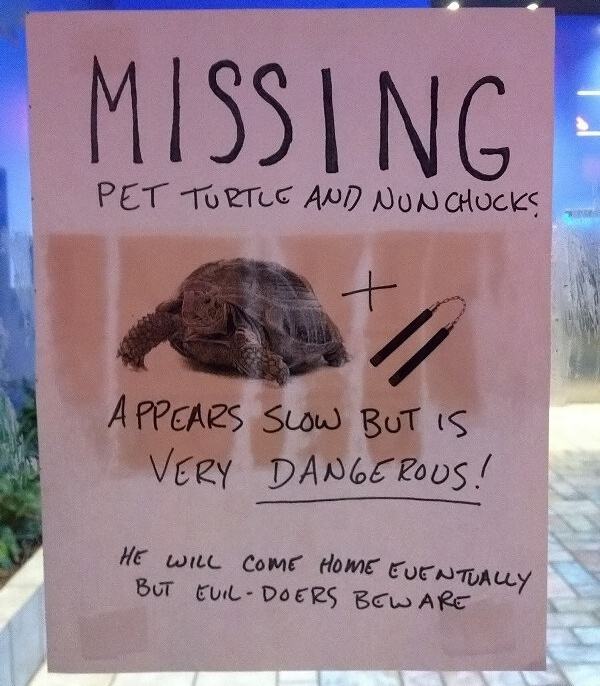 MISSING
PET TURTLE AND NUNCHUCKS
+
APPEARS SLOW BUT IS
VERY DANGEROUS!
HE WILL COME HOME EVENTUALLY
BUT EVIL-DOERS BEWARE